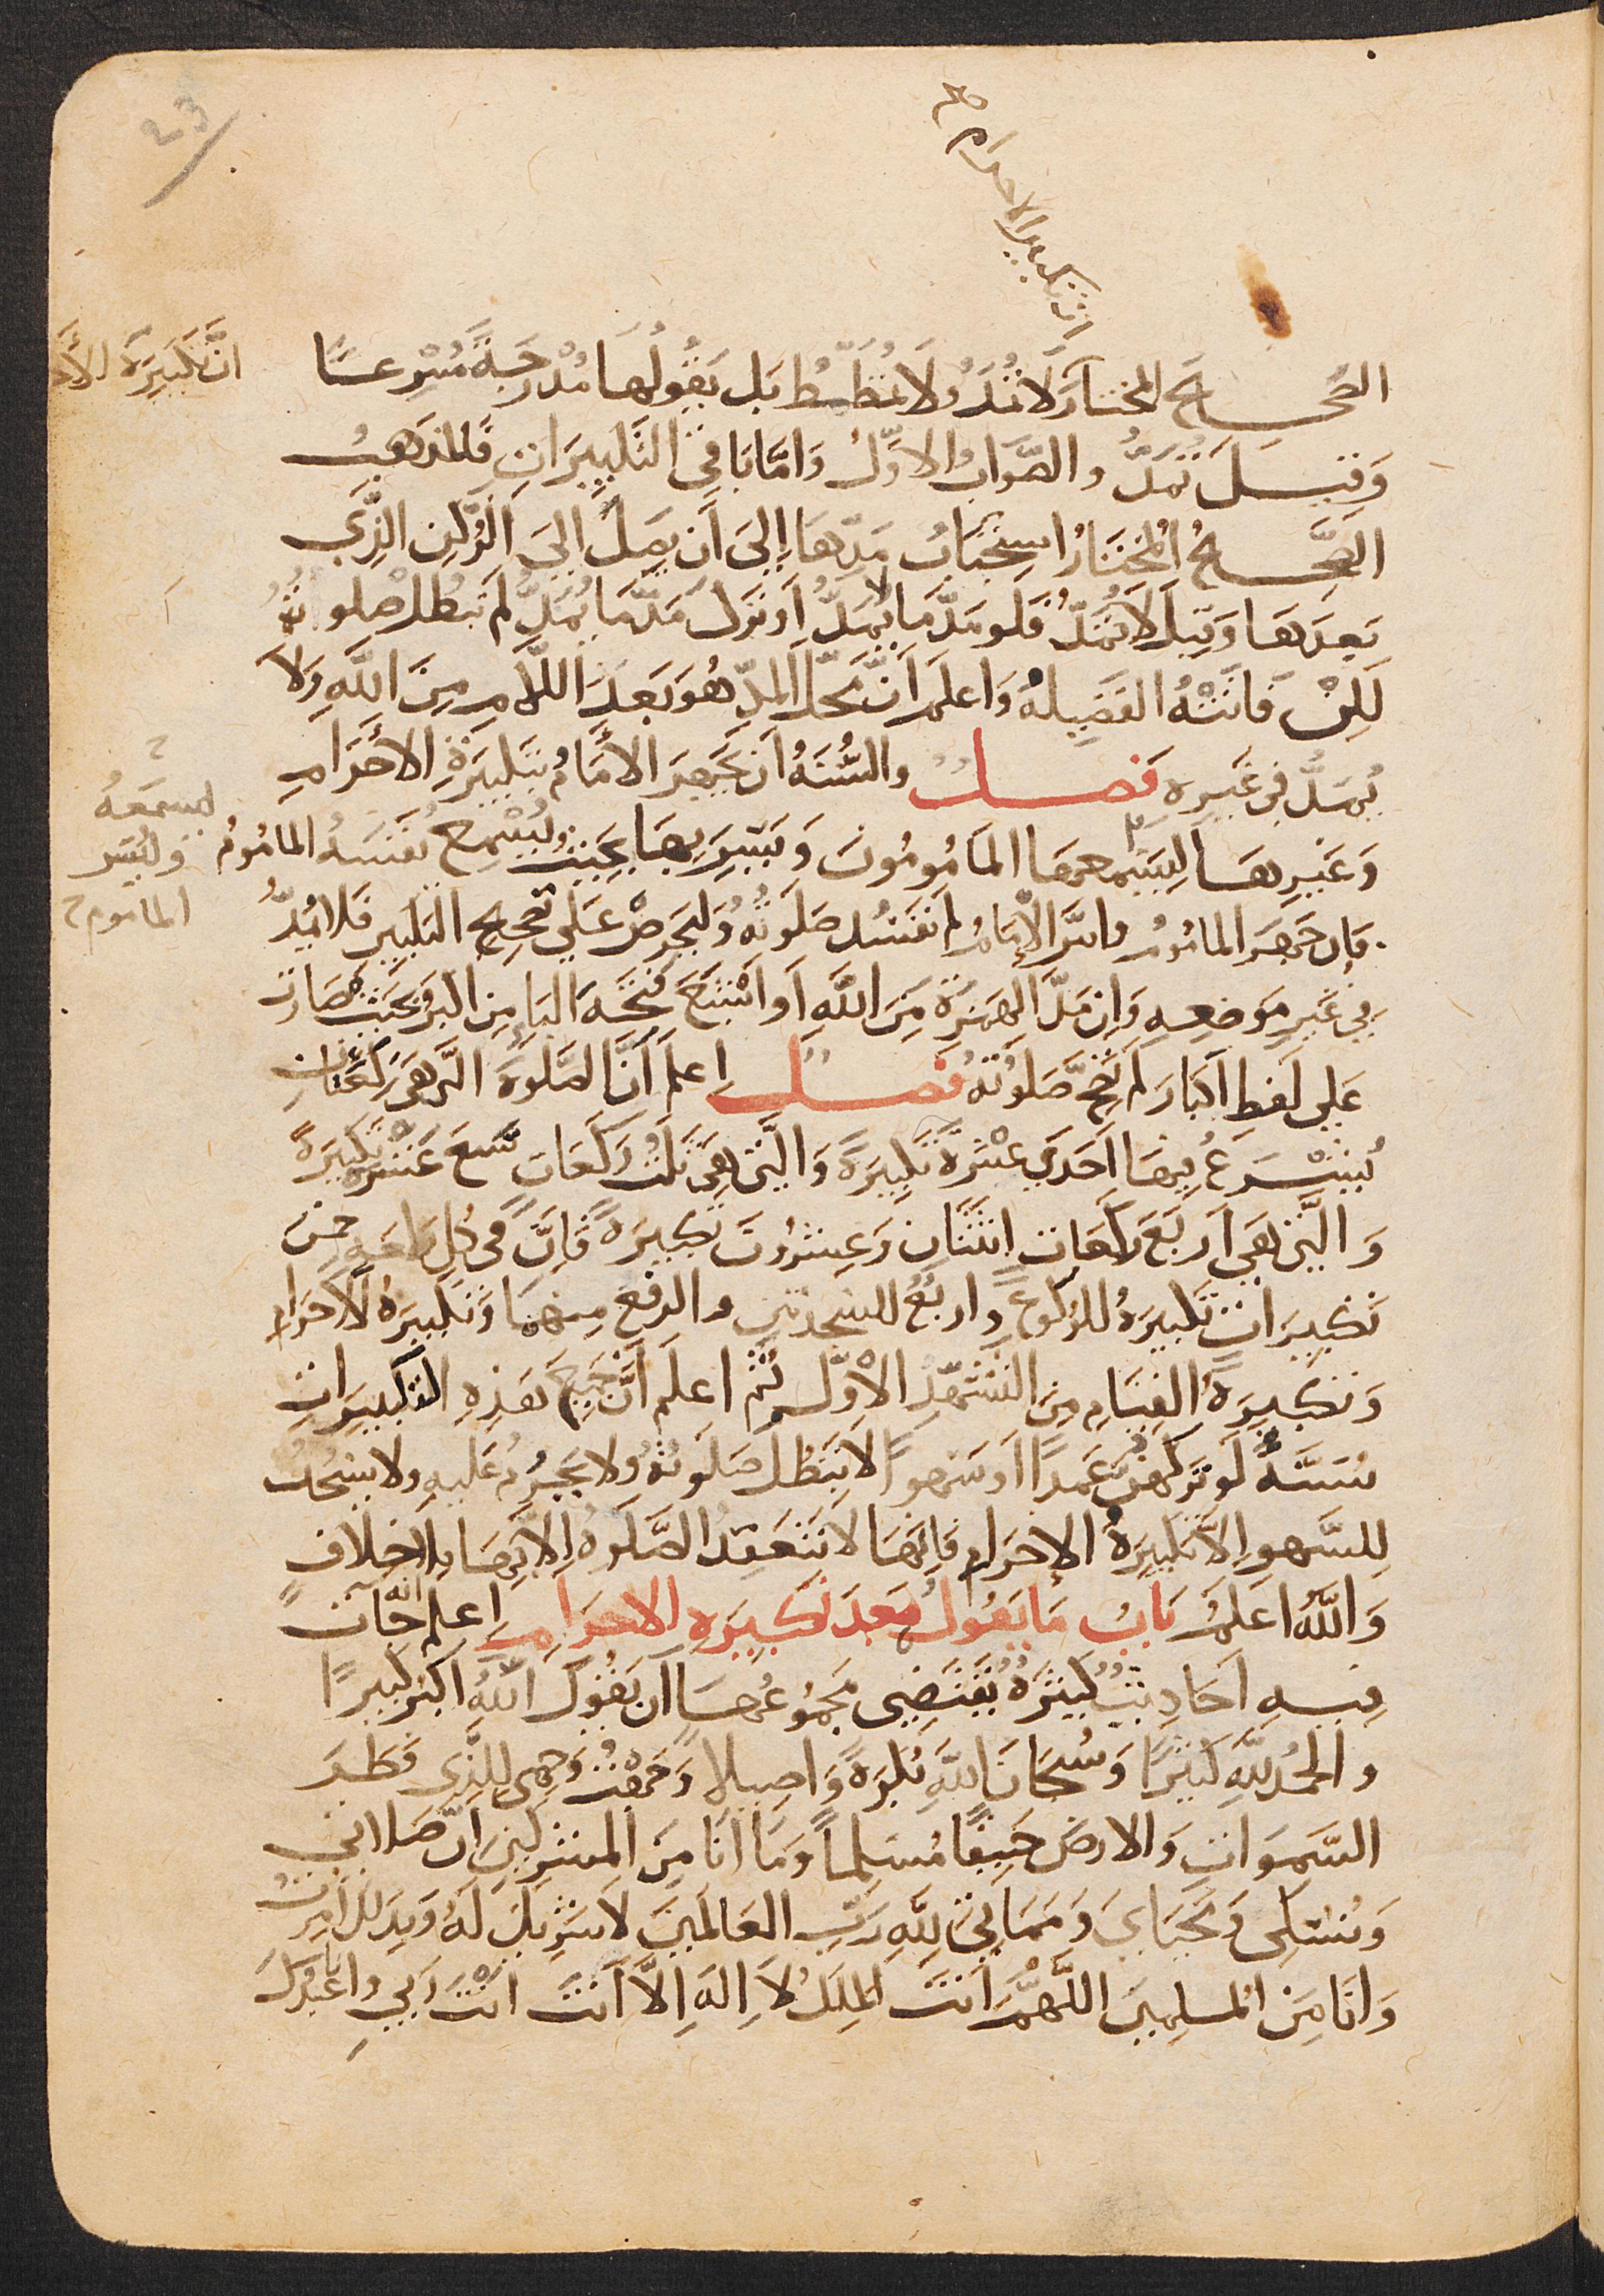 23
ان تكبيرة الاحرام صح
ان تكبيرة الأ
الصحيح المختار لا تمد ولا تمطط بل يقولها مدرجة مسرعا
وقيل تمد والصواب الاول واما باقي التكبيرات فالمذهب
الصحيح المختار استحباب مدها إلى أن يصل إلى الركن الذي
بعدها وقيل لا تمد فلو مد ما لا يمد او ترك مد ما يمد لم تبطل صلوته
لكن فاتته الفضيلة واعلم أن محل المد هو بعد اللام من الله ولا
يمد في غيره فصل والسنة ان يجهر الأمام بتكبيرة الأحرام
وغيرها ليسمعها المامومون ويسر بها بحيث يسمع نفسه الماموم
ليسمعه
وليسر
الماموم
فإن جهر الماموم واسر الإمام لم تفسد صلوته وليحرص على تصحيح التكبير فلا يمد
في غير موضعه وإن مد الهمزة من الله أو اشبع فتحة الباء من اكبر بحيث صارت
على لفظ اكبار لم تصح صلوته فصل اعلم أن الصلوة التي هي ركعتان
يشرع فيها احدى عشرة تكبيرة والتي هي ثلث ركعات سبع عشرة تكبيرة
والتي هي أربع ركعات اثنتان وعشرون تكبيرة فإن في كل ركعة خمس
تكبيرات تكبيرة للركوع واربع للسجدتين والرفع منهما وتكبيرة الاحرام
وتكبيرة القيام من التشهد الاول ثم اعلم أن جميع هذه التكبيرات
سنة لو تركهن عمدا او سهوا لا تبطل صلوته ولا يحرم عليه ولا يسجد
للسهو إلا تكبيرة الاحرام فانها لا تنعقد الصلوة إلا بها بلا خلاف
والله اعلم باب ما يقول بعد تكبيرة الاحرام اعلم انه جات
فيه احاديث كثيرة يقتضي مجموعها ان يقول الله اكبر كبيرا
والحمد لله كثيرا وسبحان الله بكرة واصيلا وجهت وجهي للذي فطر
السموات والارض حنيفا مسلما وما انا من المشركين ان صلاتي
ونسكي ومحياي ومماتي لله رب العالمين لا شريك له وبذلك امرت
وانا من المسلمين اللهم انت الملك لا اله الا انت انت ربي وانا عبدك